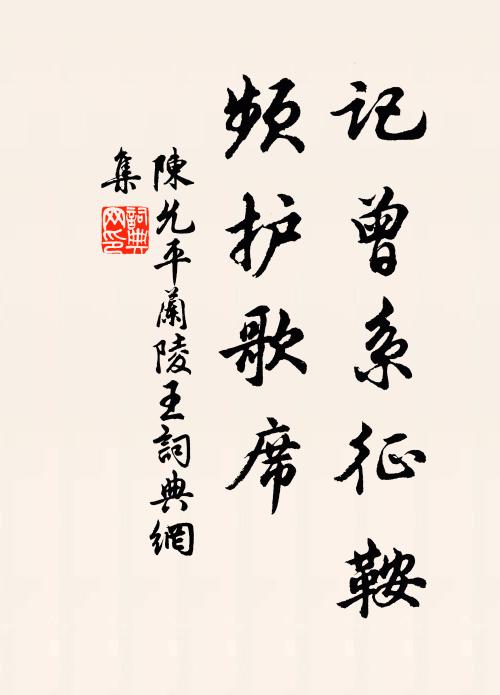 记曾系征鞍
频护歌席
陳允平蘭陵王詞典網
集
詞典网印